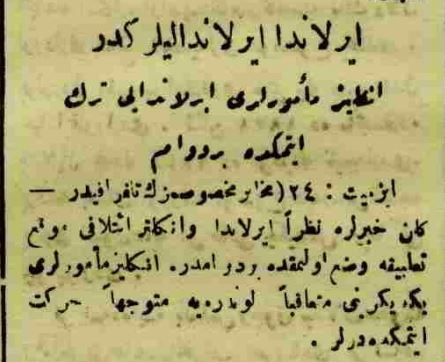 ایرلاندا ایرلاندالیلر کدر
انکلیز مأمورلری ایرلاندایی ترك
ایتمکده بردوام
ازمیت : ٢٤ (مخابر مخصوصمزك تلغرافیدر —
کلن خبرلره نظراً ایرلاندا وانکلتره ائتلافی موقع
تطبیقه وضع اولنمقده بردوامدر. انکلیز مأمورلری
یکدیکرینی متعاقباً لوندره‌یه متوجهاً حرکت
ایتمکده‌درلر .